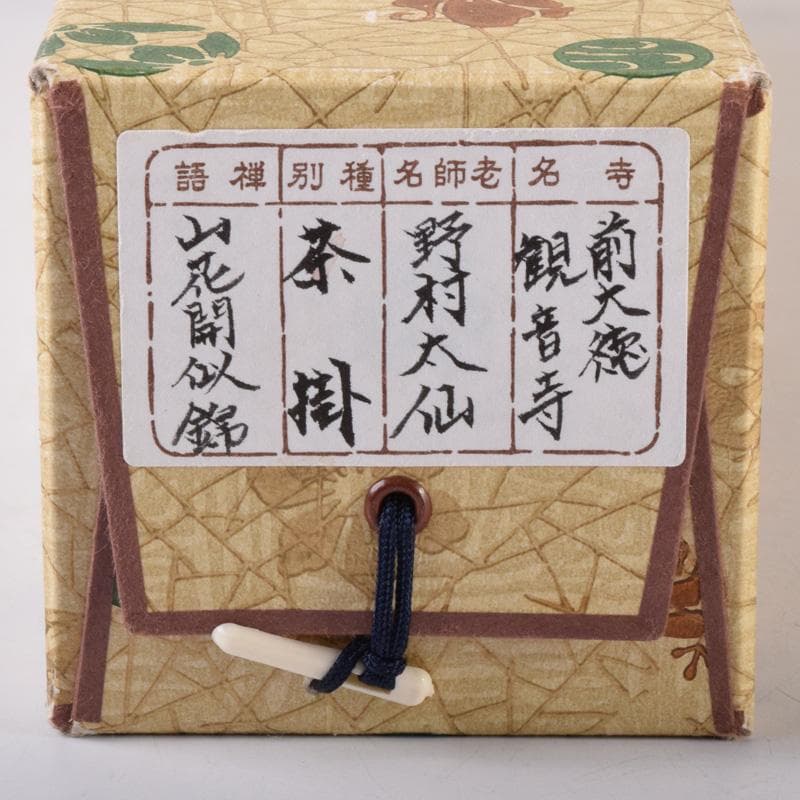 寺名
前大徳
観音寺
老師名
野村太仙
種別
茶掛
禅語
山花開似錦